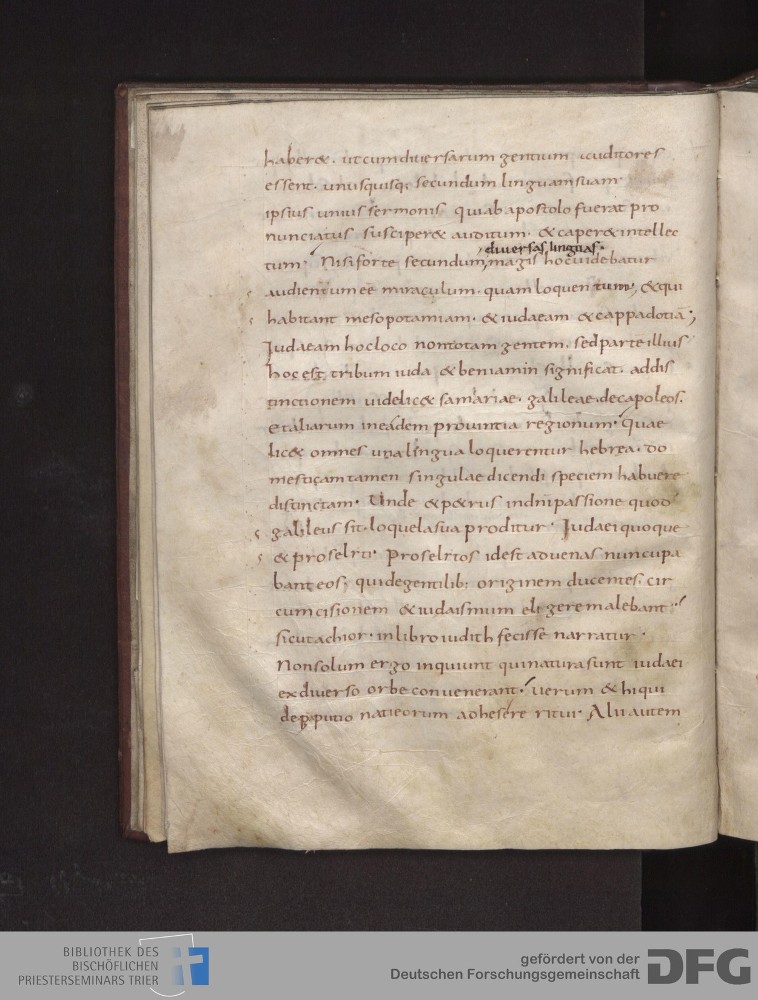 haber&. utcum diuersarum gentium auditores
essent. unusquisq; secundum linguam suam
ipsius unius sermonis qui ab apostolo fuerat pro
nunciatus susciper& auditum. & caper& intellec
diuersas linguas.
tum. Nisi forte secundum magis hoc uidebatur
audientum eē miraculum. quam loquentum; & qui
habitant mesopotamiam. & iudaeam & cappadotiā;
Iudaeam hoc loco non totam gentem. sed parte illius
hoc est tribum iuda & beniamin significat. ad dis
tinctionem uidelic& samariae. galileae. decapoleos.
et aliarum in eadem prouintia regionum. quae
lic& omnes una lingua loquerentur hebrea. do
mesticam tamen singulae dicendi speciem habuere
distinctam. Unde & p&rus in dni passione quod
galileus sit. loquela sua proditur. Iudaei quoque
& proselyti. Proselytos id est aduenas nuncupa
bant eos; qui de gentilib; originem ducentes. cir
cumcisionem & iudaismum eligere malebant.
sicut achior. in libro iudith fecisse narratur.
Non solum ergo inquiunt qui natura sunt iudaei
ex diuerso orbe conuenerant. uerum & hi qui
de pputio natieorum adhesere ritui. Alii autem
BIBLIOTHEK DES
BISCHÖFLICHEN
PRIESTERSEMINARS TRIER
gefördert von der
Deutschen Forschungsgemeinschaft
DFG